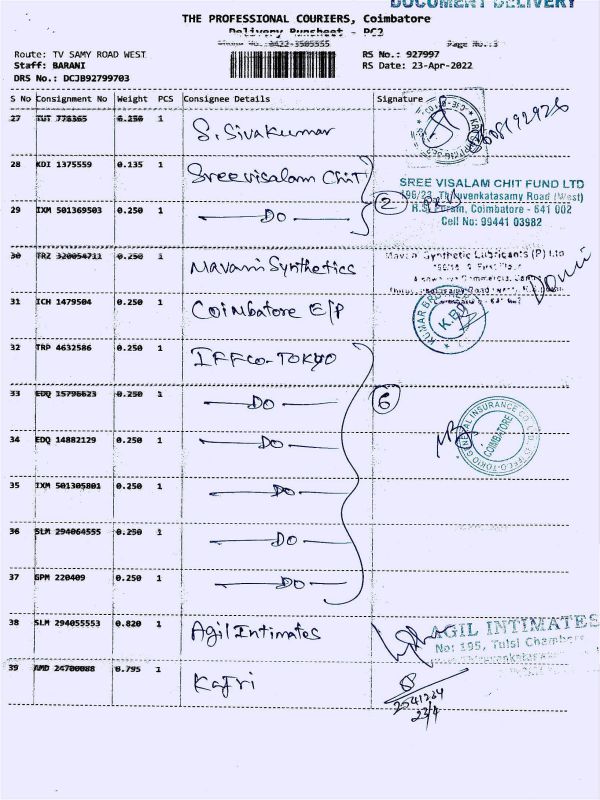 DOCUMENT DELIVERY
THE PROFESSIONAL COURIERS, Coimbatore
Delivery Runsheet - PC2
Phone No.:0422-3505555
Page No.:3
Route: TV SAMY ROAD WEST
RS No.: 927997
Staff: BARANI
RS Date: 23-Apr-2022
DRS No.: DCJB92799703
S No Consignment No Weight PCS Consignee Details Signature
27 TUT 778365 0.250 1 S. Sivakumar
28 KDI 1375559 0.135 1 Sreevisalam Chit
29 IXM 501369503 0.250 1 — DO — 2
SREE VISALAM CHIT FUND LTD
196/23, Thiruvenkatasamy Road (West)
R.S. Puram, Coimbatore - 641 002
Cell No: 99441 03982
30 TRZ 320054711 0.250 1 Mavani Synthetics
Synthetic Lubricants (P) Ltd
31 ICH 1479504 0.250 1 Coimbatore E/P
KUMAR
K.B
32 TRP 4632586 0.250 1 IFFCO-TOKYO
33 EDQ 15796623 0.250 1 — DO — 6
34 EDQ 14882129 0.250 1 — DO —
IFFCO-TOKIO GENERAL INSURANCE CO. LTD.
COIMBATORE
35 IXM 501305801 0.250 1 — DO —
36 SLM 294064555 0.250 1 — DO —
37 GPM 220409 0.250 1 — DO —
38 SLM 294055553 0.820 1 Agil Intimates
AGIL INTIMATES
No: 195, Tulsi Chambers
39 AMD 24700088 0.795 1 Kajri
23/4